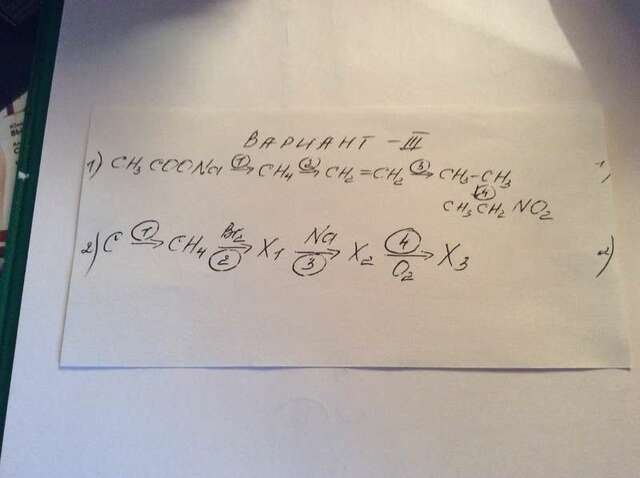 ВАРИАНТ - III
1) CH3 COONa ①→ CH4 ②→ CH2 = CH2 ③→ CH3 - CH3 1)
↓④
CH3 CH2 NO2
2) C ①→ CH4 Br2→② X1 Na→③ X2 ④→O2 X3 2)